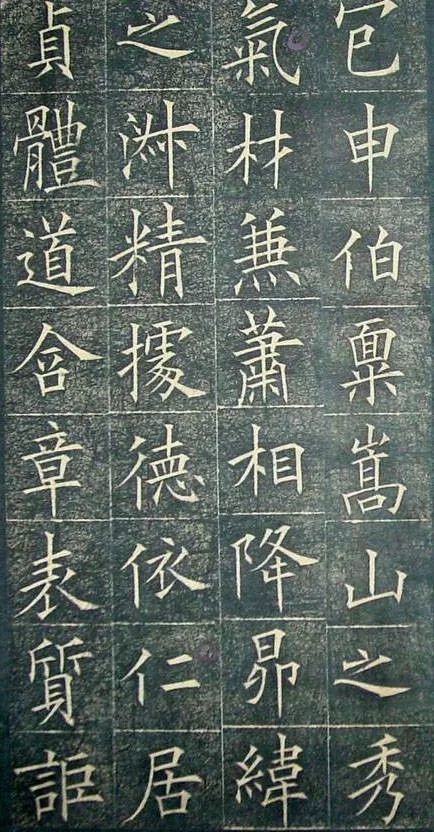 包申伯稟嵩山之秀
氣材兼蕭相降昴緯
之淋精據德依仁居
貞體道含章表質詎